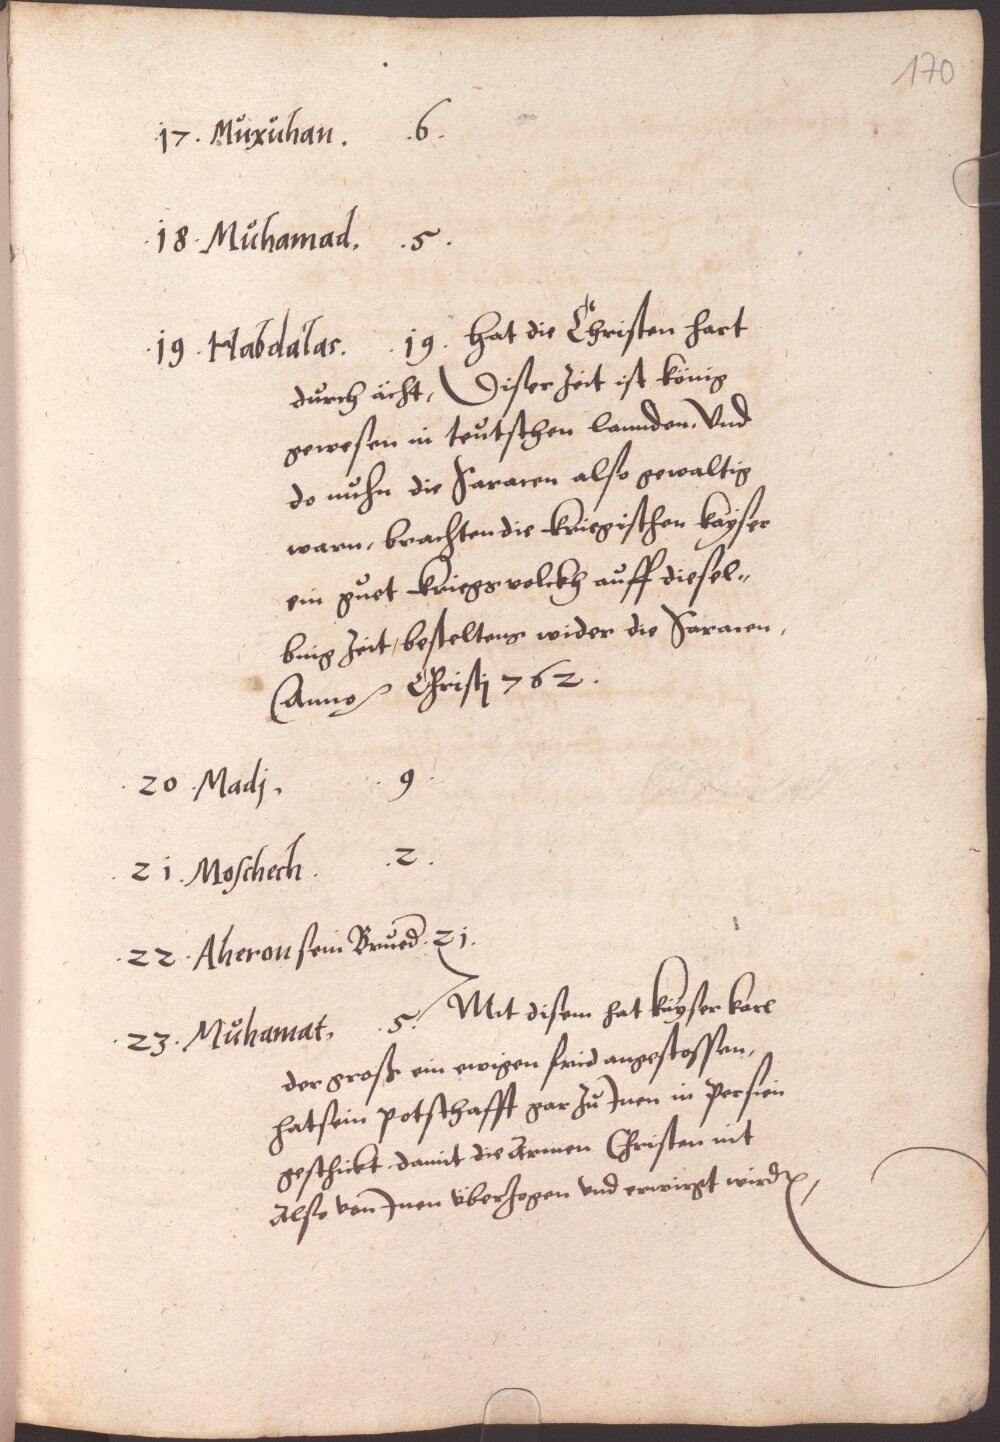 170
.17. Můxůhan. .6.
.18. Můhamad. .5.
.19. Habdalas. .19. Hat die Christen hart
důrch ächt, Diser Zeit ist König
gewesen in teůtschen lannden. Vnd
do nůhn die Saracen also gewaltig
warn, brachten die kriegischen kaÿser
ein gůet kriegsvolckh aůff diesel„
bnig Zeit, bestelltens wider die Saracen,
Anno Christj 762.
.20. Madj. .9.
.21. Moschech. .2.
.22. Aheron sein Brůed. 21.
.23. Můhamat. .5. Mit disem hat kaÿser karl
der groß ein ewigen frid angestossen,
hat sein potschafft gar Zů Jnen in Persien
geschickt. damit die Armen Christen nit
Also von Jnen überzogen vnd erwirgt wird,